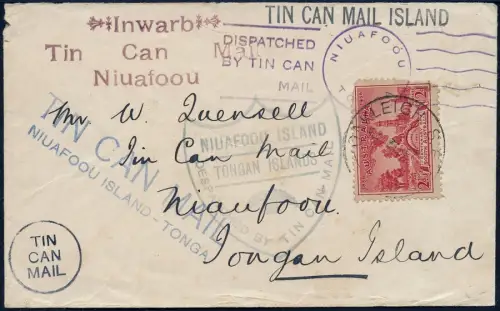 TIN CAN MAIL ISLAND
Inwarb
Tin Can Mail
Niuafoou
DISPATCHED
BY TIN CAN
MAIL
NIUAFOOU
Mr W. Quensell
Tin Can Mail
Niuafoou.
Tongan Island
TIN CAN MAIL
NIUAFOOU ISLAND - TONGA
NIUAFOOU ISLAND
TONGAN ISLANDS
BY TIN
MAIL
TIN
CAN
MAIL